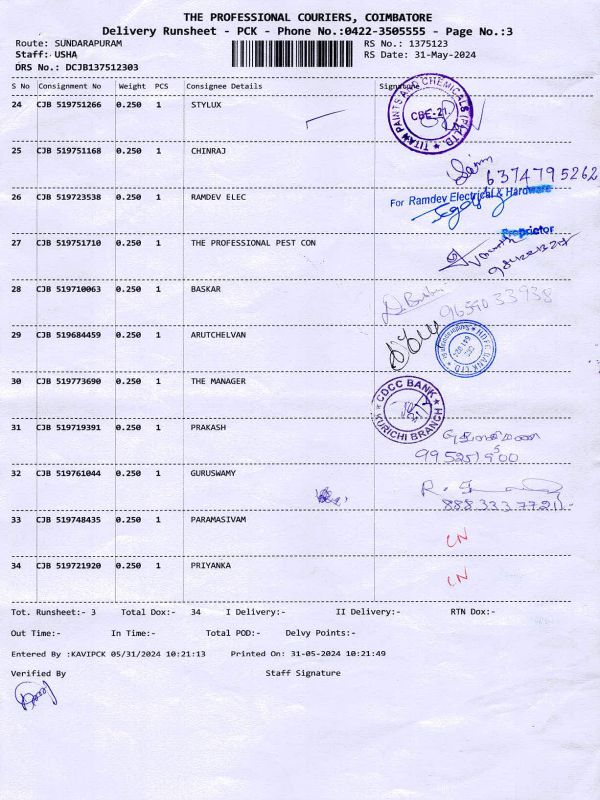 THE PROFESSIONAL COURIERS, COIMBATORE
Delivery Runsheet - PCK - Phone No.:0422-3505555 - Page No.:3
Route: SUNDARAPURAM
RS No.: 1375123
Staff: USHA
RS Date: 31-May-2024
DRS No.: DCJB137512303
S No Consignment No Weight PCS Consignee Details Signature
24 CJB 519751266 0.250 1 STYLUX
TITAN PAINTS AND CHEMICALS (P) LTD.
CBE-21
25 CJB 519751168 0.250 1 CHINRAJ
6374795262
26 CJB 519723538 0.250 1 RAMDEV ELEC
For Ramdev Electrical & Hardware
Proprietor
27 CJB 519751710 0.250 1 THE PROFESSIONAL PEST CON
28 CJB 519710063 0.250 1 BASKAR
9659033938
29 CJB 519684459 0.250 1 ARUTCHELVAN
HDFC BANK LTD
30 CJB 519773690 0.250 1 THE MANAGER
CDCC BANK
KURICHI BRANCH
31 CJB 519719391 0.250 1 PRAKASH
32 CJB 519761044 0.250 1 GURUSWAMY
33 CJB 519748435 0.250 1 PARAMASIVAM
LN
34 CJB 519721920 0.250 1 PRIYANKA
LN
Tot. Runsheet:- 3 Total Dox:- 34 I Delivery:- II Delivery:- RTN Dox:-
Out Time:- In Time:- Total POD:- Delvy Points:-
Entered By :KAVIPCK 05/31/2024 10:21:13 Printed On: 31-05-2024 10:21:49
Verified By Staff Signature